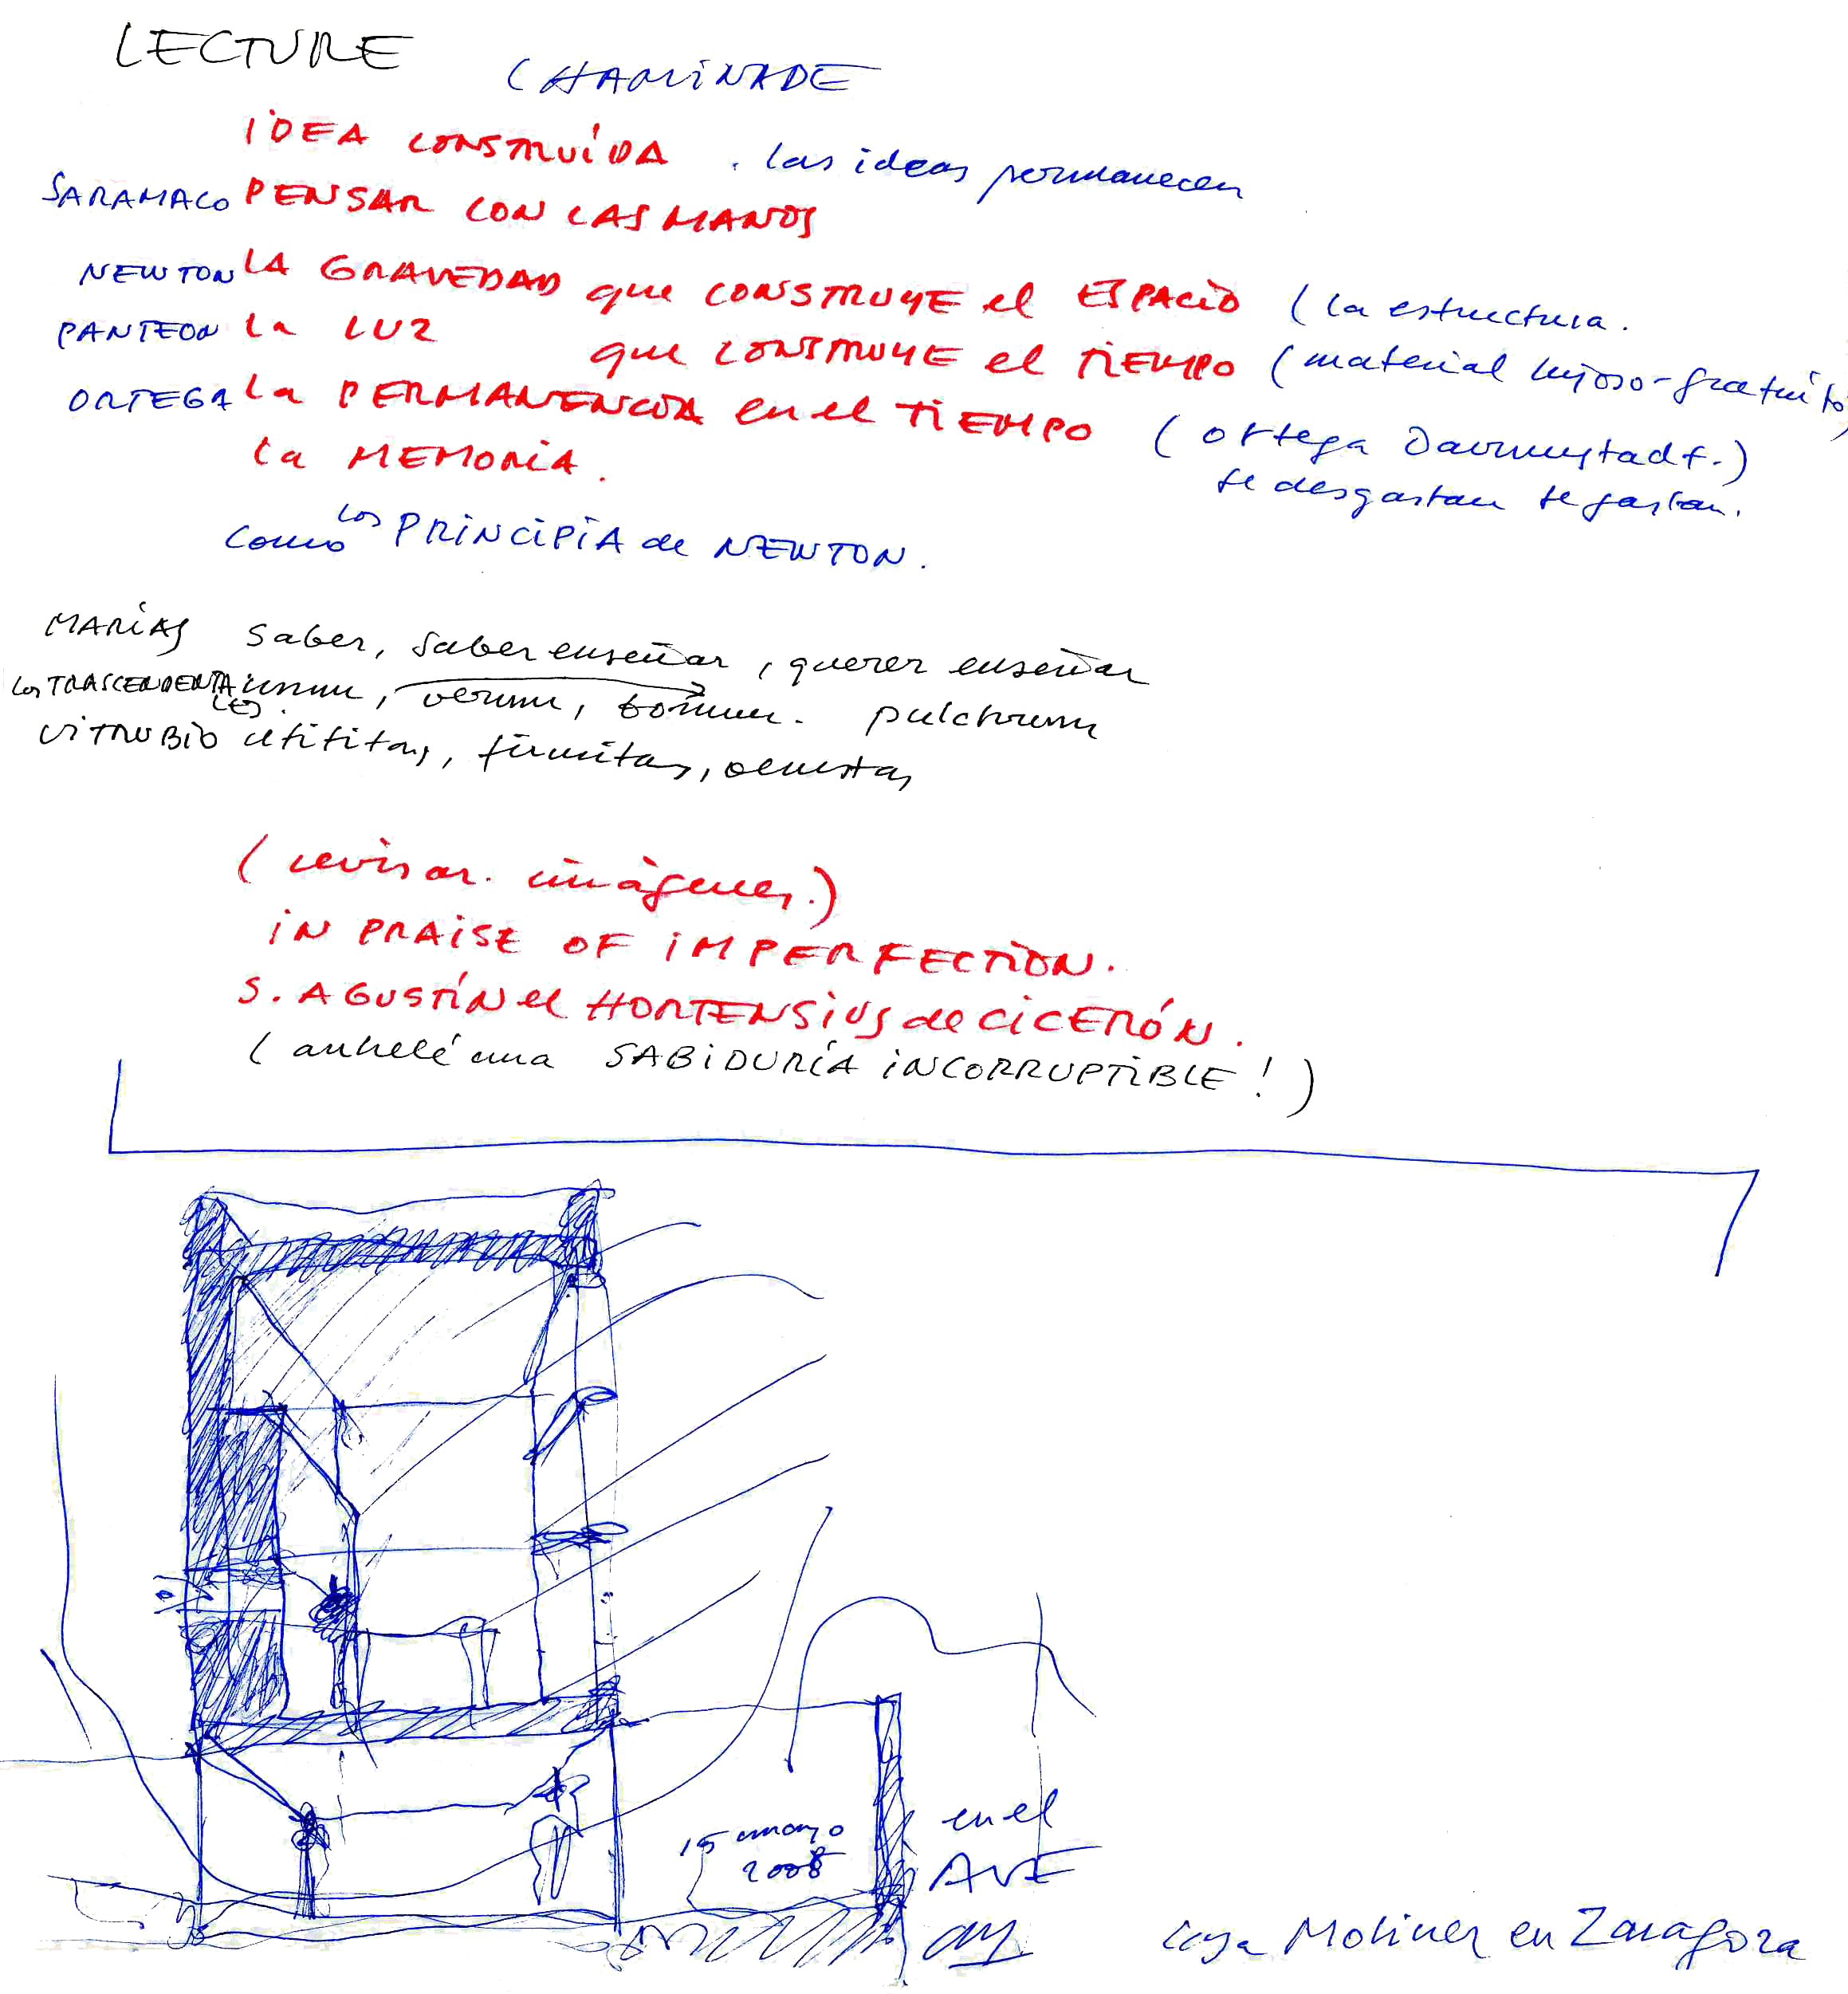 LECTURE
CHAMINADE
IDEA CONSTRUÍDA . las ideas permanecen
SARAMACO PENSAR CON LAS MANOS
NEWTON LA GRAVEDAD que CONSTRUYE el ESPACIO (la estructura.
PANTEON La LUZ que CONSTRUYE el TIEMPO (material lujoso-gratuito)
ORTEGA La PERMANENCIA en el TIEMPO (ortega Darmstadt.)
La MEMORIA. se desgastan se gastan.
como los PRINCIPIA de NEWTON.
MARÍAS saber, saber enseñar, querer enseñar
Los TRASCENDENTALES. unum, verum, bonum. pulchrum
VITRUBIO utilitas, firmitas, venustas
(revisar. imágenes.)
IN PRAISE OF IMPERFECTION.
S. AGUSTÍN el HORTENSIUS de CICERÓN.
(anhelé una SABIDURÍA INCORRUPTIBLE!)
15 mayo
2008
en el
AVE
casa Moliner en Zaragoza